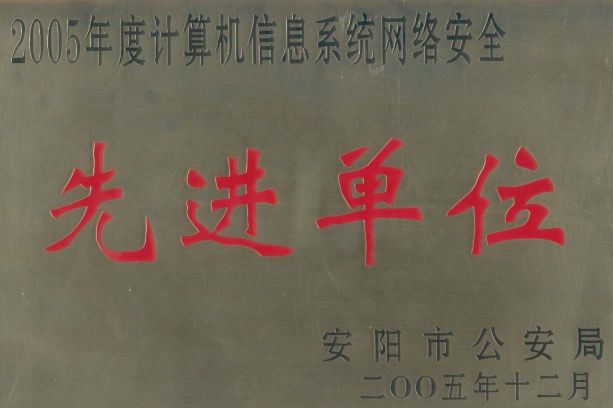 2005年度计算机信息系统网络安全
先进单位
安阳市公安局
二〇〇五年十二月